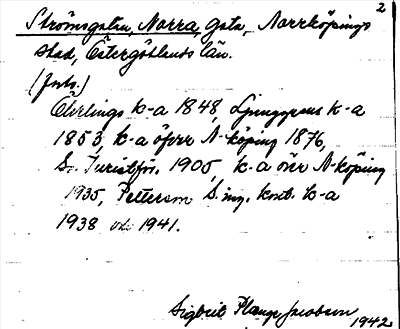 2
Strömsgatan, Norra, gata, Norrköpings
stad, Östergötlands län.
(Forts.)
Ekelings k-a 1848, Ljunggrens k-a
1853, k-a över N-köping 1876,
Sv. Turistför. 1905, k-a över N-köping
1935, Petterson S. ing. kont. k-a
1938 och 1941.
Sigbrit Plænge Jacobson
1942